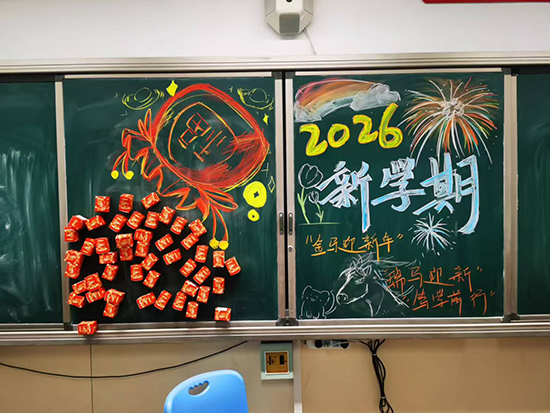 2026
新学期
"金马迎新年"
"瑞马迎新"
笃学前行"